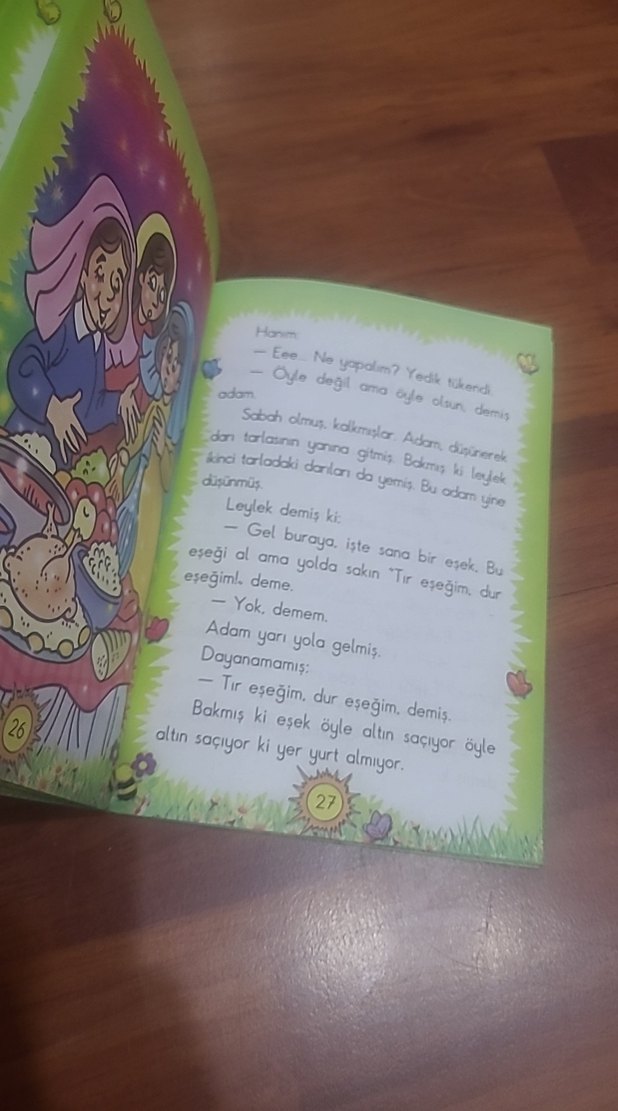 Hanım:
— Eee... Ne yapalım? Yedik tükendi.
— Öyle değil ama öyle olsun, demiş
adam.
Sabah olmuş, kalkmışlar. Adam, düşünerek
darı tarlasının yanına gitmiş. Bakmış ki leylek
ikinci tarladaki darıları da yemiş. Bu adam yine
düşünmüş.
Leylek demiş ki:
— Gel buraya, işte sana bir eşek. Bu
eşeği al ama yolda sakın "Tır eşeğim, dur
eşeğim!„ deme.
— Yok, demem.
Adam yarı yola gelmiş.
Dayanamamış:
— Tır eşeğim, dur eşeğim, demiş.
Bakmış ki eşek öyle altın saçıyor öyle
altın saçıyor ki yer yurt almıyor.
26
27